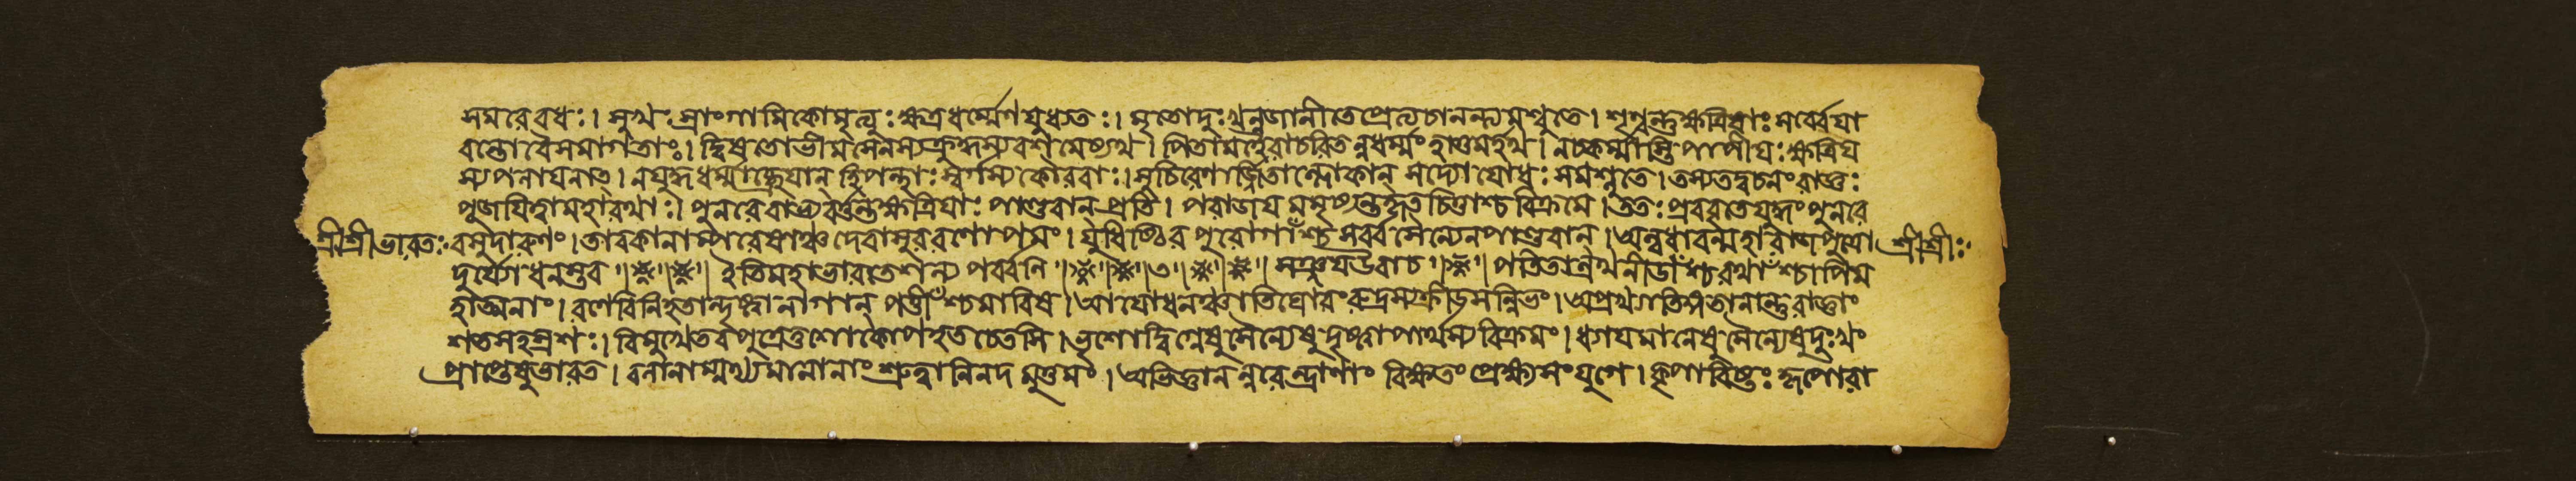 সমরে বধঃ। সুখঃ সাংগামিকোমৃত্যুঃ ক্ষত্রধর্ম্মেণযুধ্যতঃ। মৃতোদুঃখন্নজানীতেপ্রেত্যচানন্ত্যমশ্নুতে। শৃণ্বন্তুক্ষত্রিয়াঃ সর্ব্বেযা
বন্তোবৈসমাগতাঃ। দ্বিষতোভীমসেনস্যক্রুদ্ধস্যবশমেষ্যথ। পিতামহৈরাচরিতন্নধর্ম্মংহাতুমর্হথ। নচকর্ম্মাস্তিপাপীয়ঃ ক্ষত্রিয
স্যপলাযনাত্। নযুদ্ধধর্ম্মাচ্ছ্রেযান্ হিপন্থাঃ স্বর্গস্যকৌরবাঃ। সুচিরেণার্জ্জিতাল্লোকান্ সদ্যোযোধঃ সমশ্নুতে। তস্যতদ্বচনংরাজ্ঞঃ
পূজযিত্বামহারথাঃ। পুনরেবাভ্যবর্ত্তন্তক্ষত্রিযাঃ পাণ্ডবান্ প্রতি। পরাজযমমৃষ্যন্তঃকৃতচিত্তাশ্চবিক্রমে। ততঃ প্রববৃতেযুদ্ধংপুনরে
শ্রীশ্রীভারতঃ বসুদারুণং। তাবকানাম্পরেষাঞ্চদেবাসুররণোপমং। যুধিষ্ঠিরপুরোগাঁশ্চসর্ব্বসৈন্যেনপাণ্ডবান্। অন্বধাবন্মহারাজপুত্রো শ্রীশ্রীঃ
দুর্যোধনস্তব॥ ॥ ॥ ইতিমহাভারতেশল্যপর্ব্বণি॥ ॥ ॥৩॥ ॥ ॥ সঞ্জযউবাচ॥ ॥ পতিতান্রথনীডাঁশ্চরথাঁশ্চাপিম
হাত্মনাং। রণেবিনিহতান্দৃষ্ট্বানাগান্ পত্তীঁশ্চমারিষ। আযোধনঞ্চাতিঘোরংরুদ্রস্যাক্রীড়সন্নিভং। অপ্রখ্যাতিঙ্গতানান্তুরাজ্ঞাং
শতসহস্রশঃ। বিমুখেতবপুত্রেতুশোকোপহতচেতসি। ভৃশোদ্বিগ্নেষুসৈন্যেষুদৃষ্ট্বাপার্থস্যবিক্রমং। ধ্যাযমানেষুসৈন্যেষুদুঃখং
প্রাপ্তেষুভারত। বলানাম্মথ্যমানানাংশ্রুত্বানিনদমুত্তমং। অভিজ্ঞানন্নরেন্দ্রাণাং বিক্ষতংপ্রেক্ষ্যসংযুগে। কৃপাবিষ্টঃ কৃপোরা